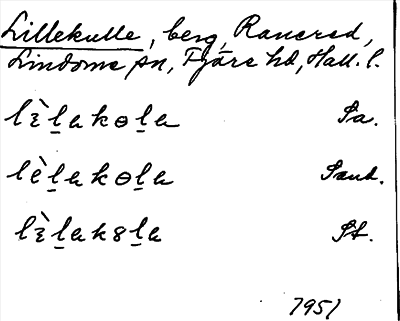 Lillekulle, berg, Ranered,
Lindome sn, Fjäre hd, Hall. l.
lɛ̀l̠akɵl̠a Sa.
lèl̠akɵl̠a Sand.
lɛ̀l̠ak8l̠a St.
1951